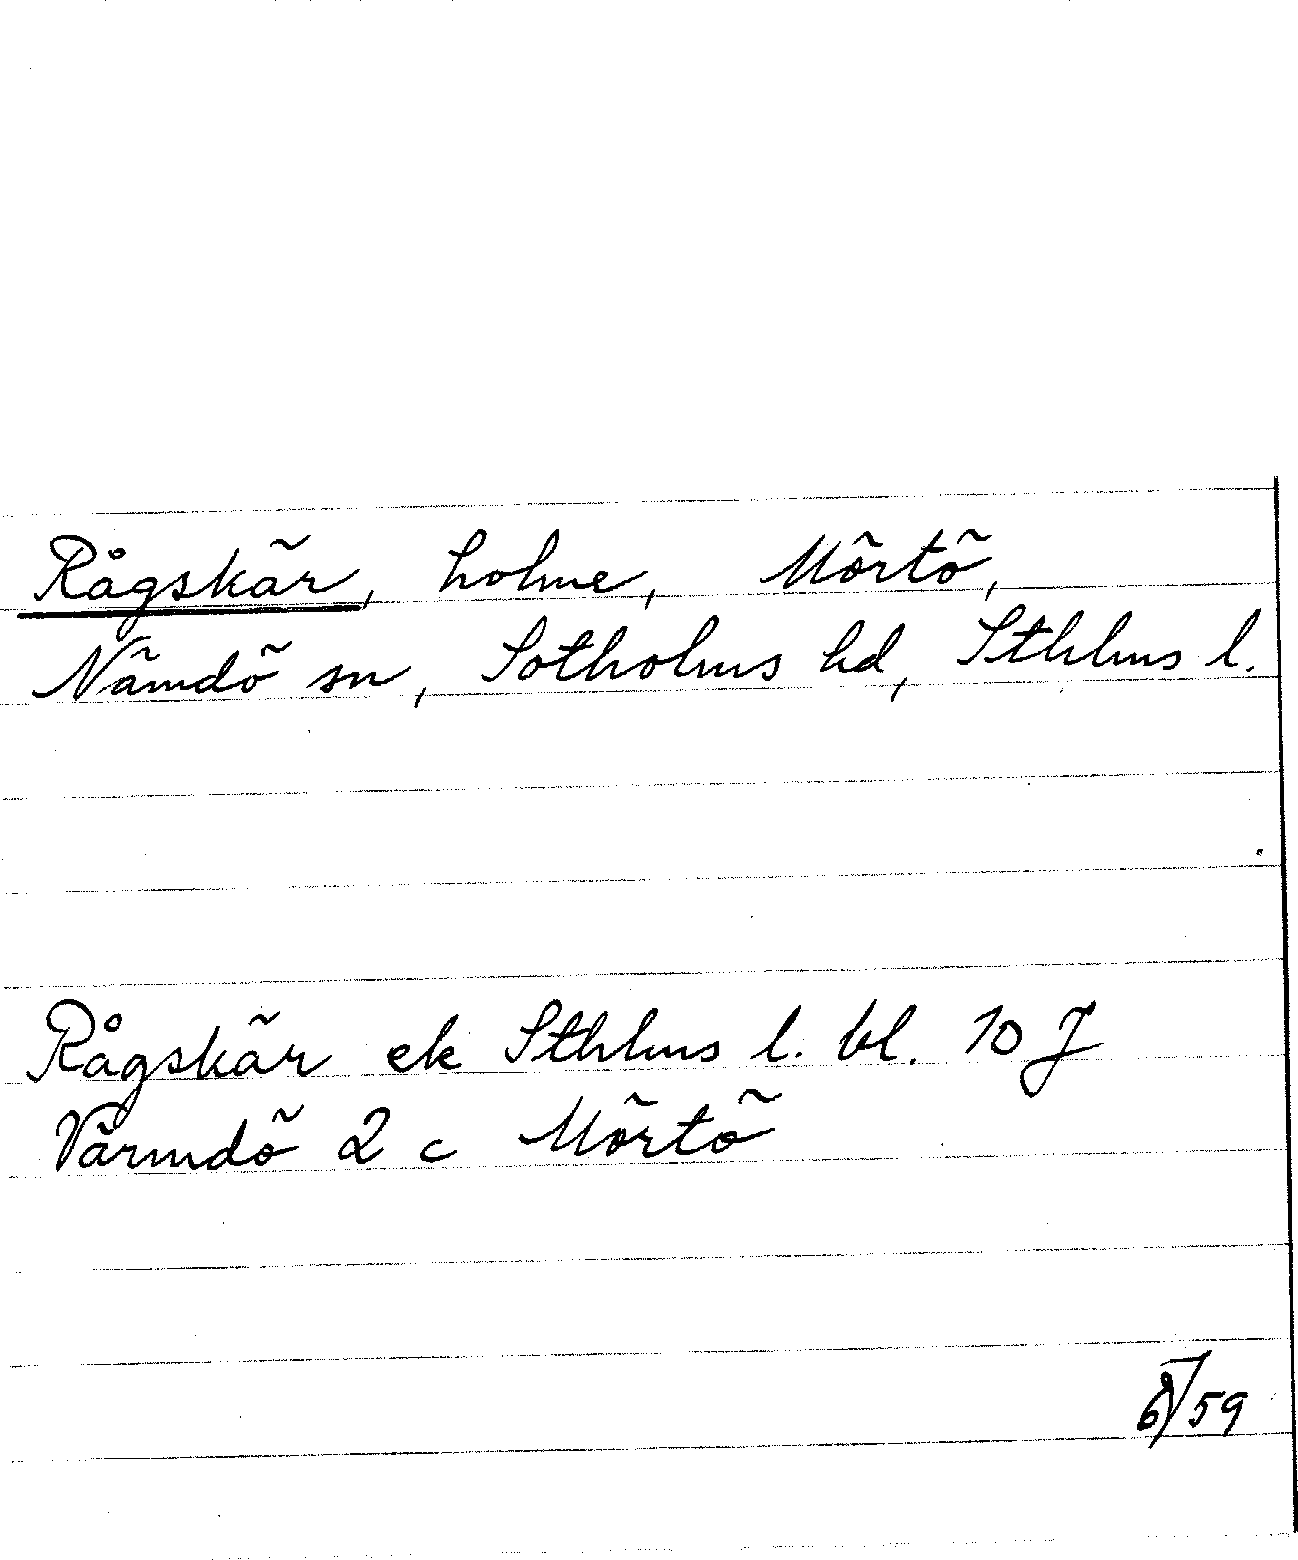 Rågskär, holme, Mörtö,
Nämdö sn, Sotholms hd, Sthlms l.
Rågskär ek Sthlms l. bl. 10 J
Värmdö 2 c Mörtö
59